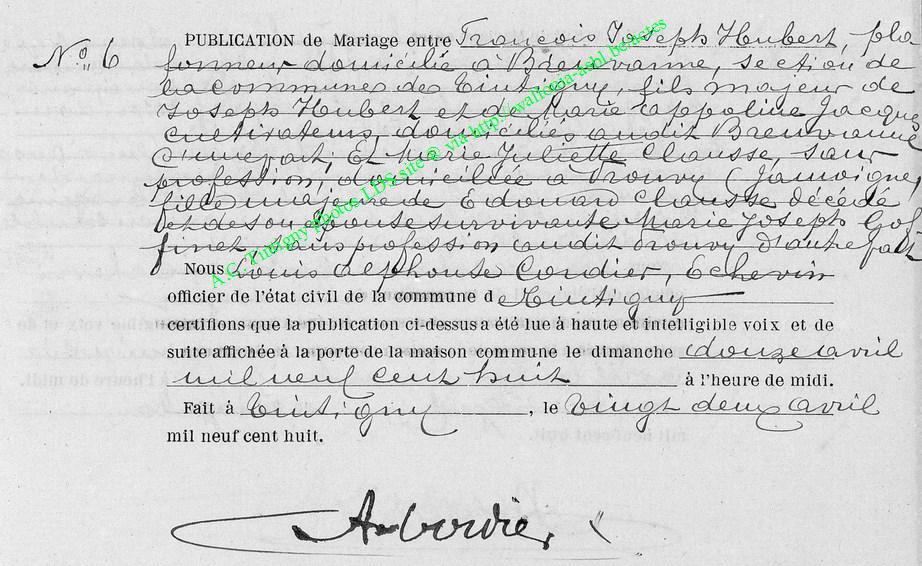 N° 6
PUBLICATION de Mariage entre François Joseph Hubert, pla
fonneur domicilié à Breuvanne, section de
la commune de Tintigny, fils majeur de
Joseph Hubert et de Marie Appoline Jacque
cultivateurs, domiciliés audit Breuvanne
d'une part; Et Marie Juliette Clausse, sans
profession, domiciliée à Prouvy (Jamoigne)
fille majeure de Edouard Clausse décédé
et de son épouse survivante Marie Joseph Gof
finet, sans profession audit Prouvy d'autre part
Nous Louis Alphonse Cordier, Echevin
officier de l'état civil de la commune de Tintigny
certifions que la publication ci-dessus a été lue à haute et intelligible voix et de
suite affichée à la porte de la maison commune le dimanche douze avril
mil neuf cent huit à l'heure de midi.
Fait à Tintigny, le vingt deux avril
mil neuf cent huit.
A. Cordier
A.G. Tintigny photos LDS site @ via http://wallonia-asbl.be/actes